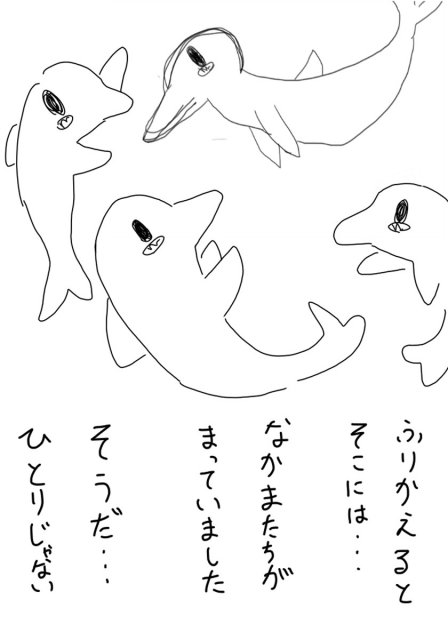 ふりかえると
そこには・・・
なかまたちが
まっていました
そうだ・・・
ひとりじゃない